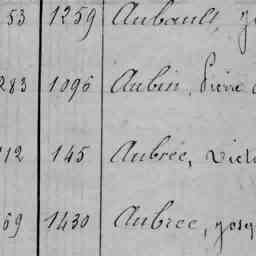 53 1259 Aubault,
283 1096 Aubin, Pierre
212 145 Aubrée, Vict
69 1430 Aubree, Jose